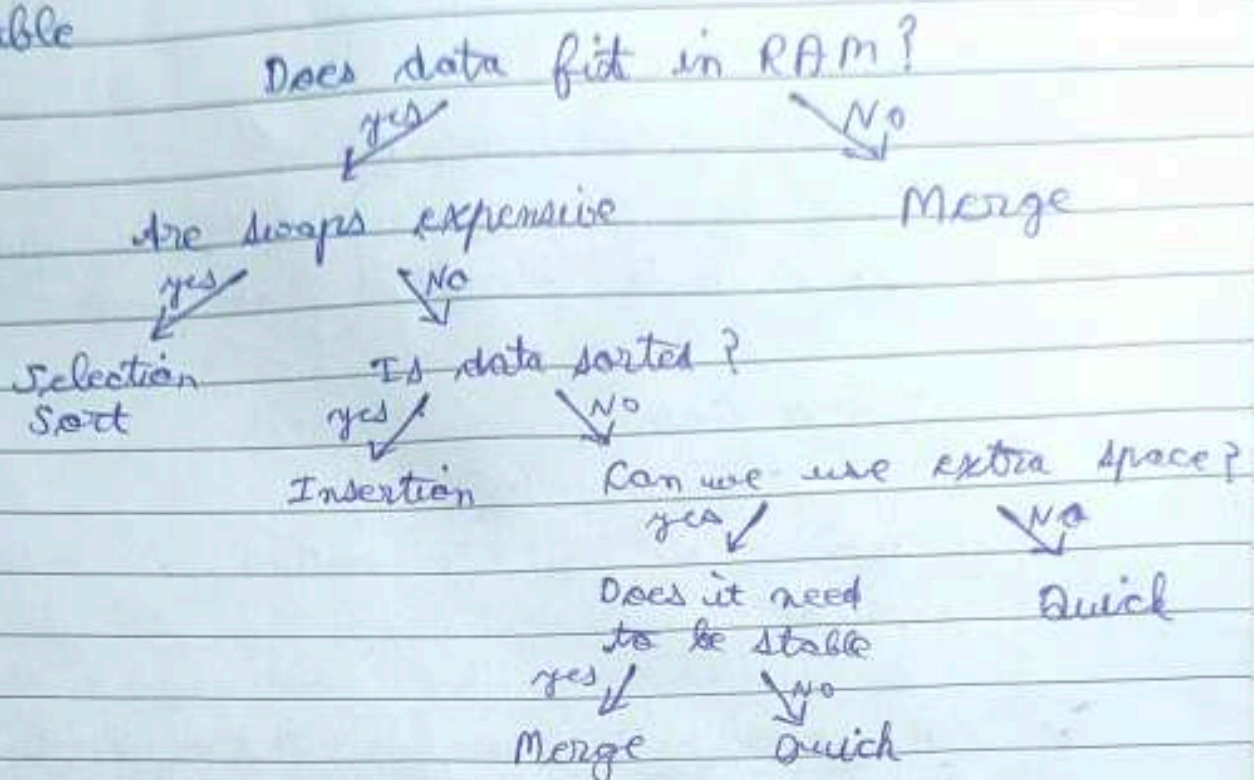 able
Does data fit in RAM?
yes No
Are swaps expensive Merge
yes No
Selection Is data sorted?
Sort yes No
Insertion Can we use extra space?
yes No
Does it need Quick
to be stable
yes No
Merge Quick